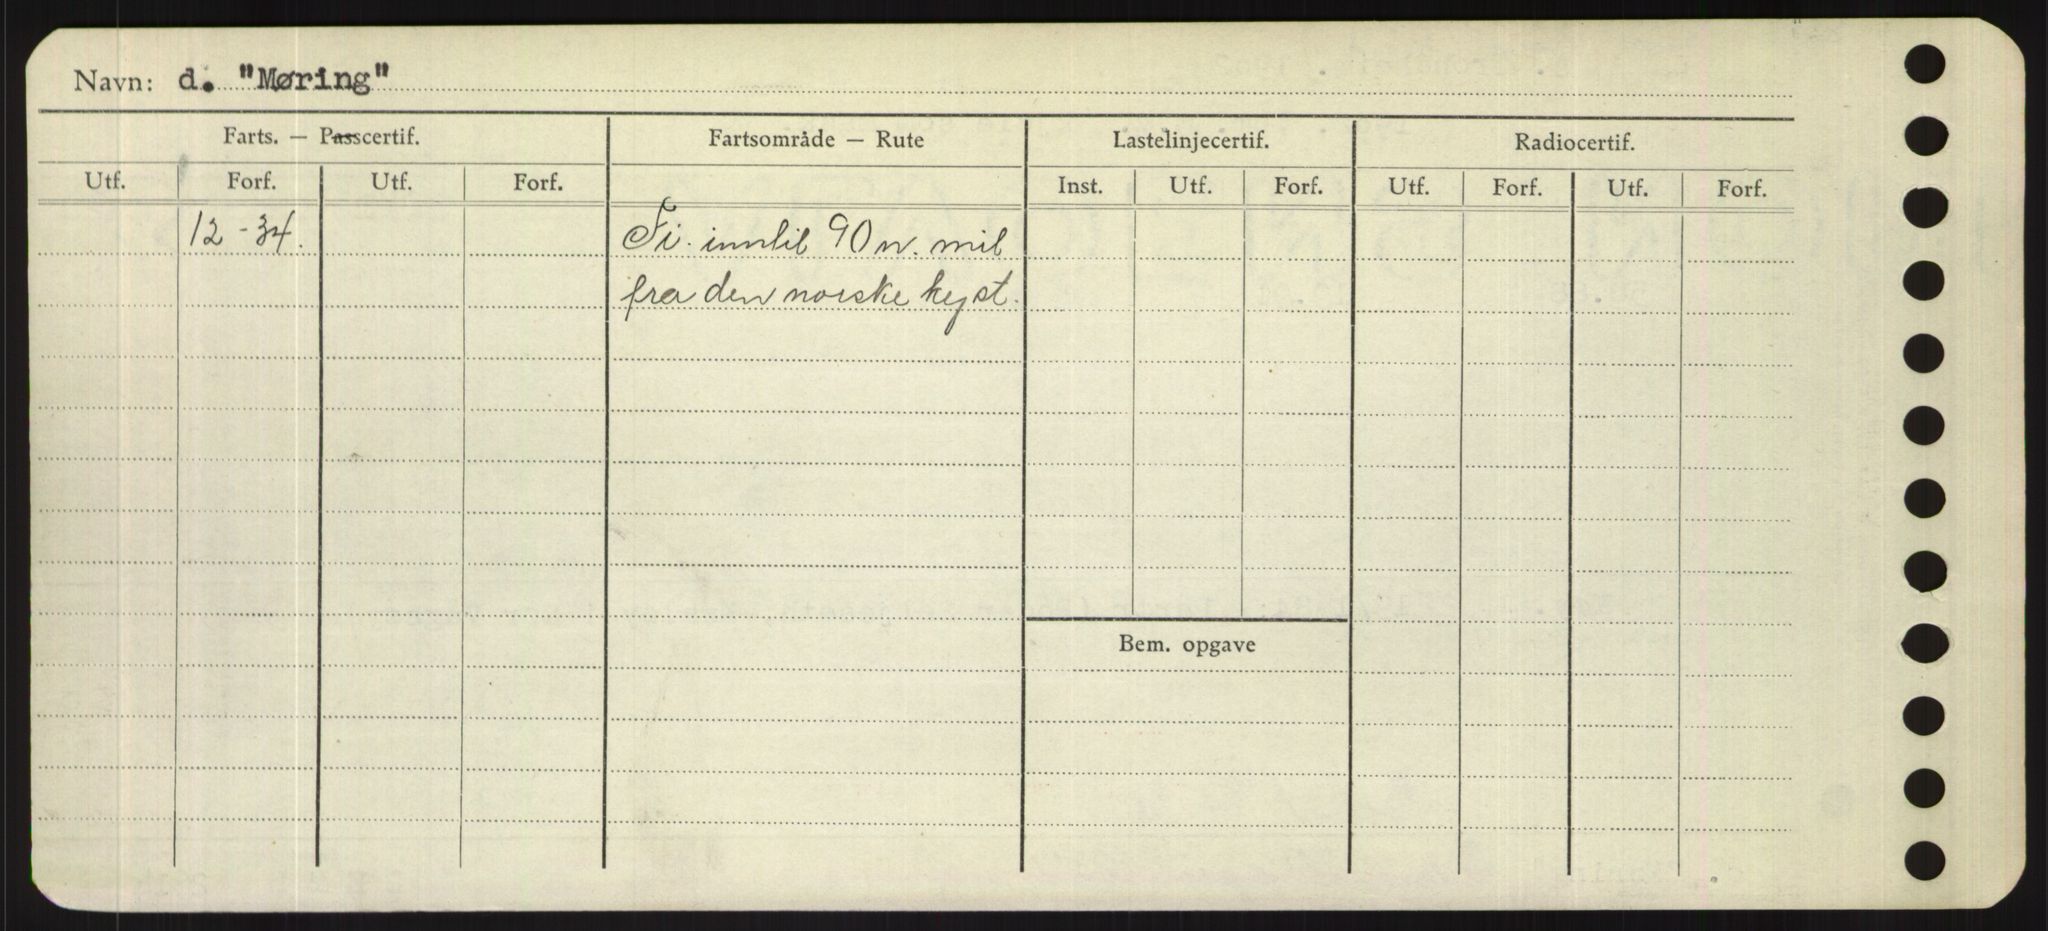 Navn: d. "Møring"
Farts. — Passcertif. Fartsområde — Rute Lastelinjecertif. Radiocertif.
Utf. Forf. Utf. Forf. Inst. Utf. Forf. Utf. Forf. Utf. Forf.
12-34. Fi. inntil 90 n. mil
fra den norske kyst.
Bem. opgave